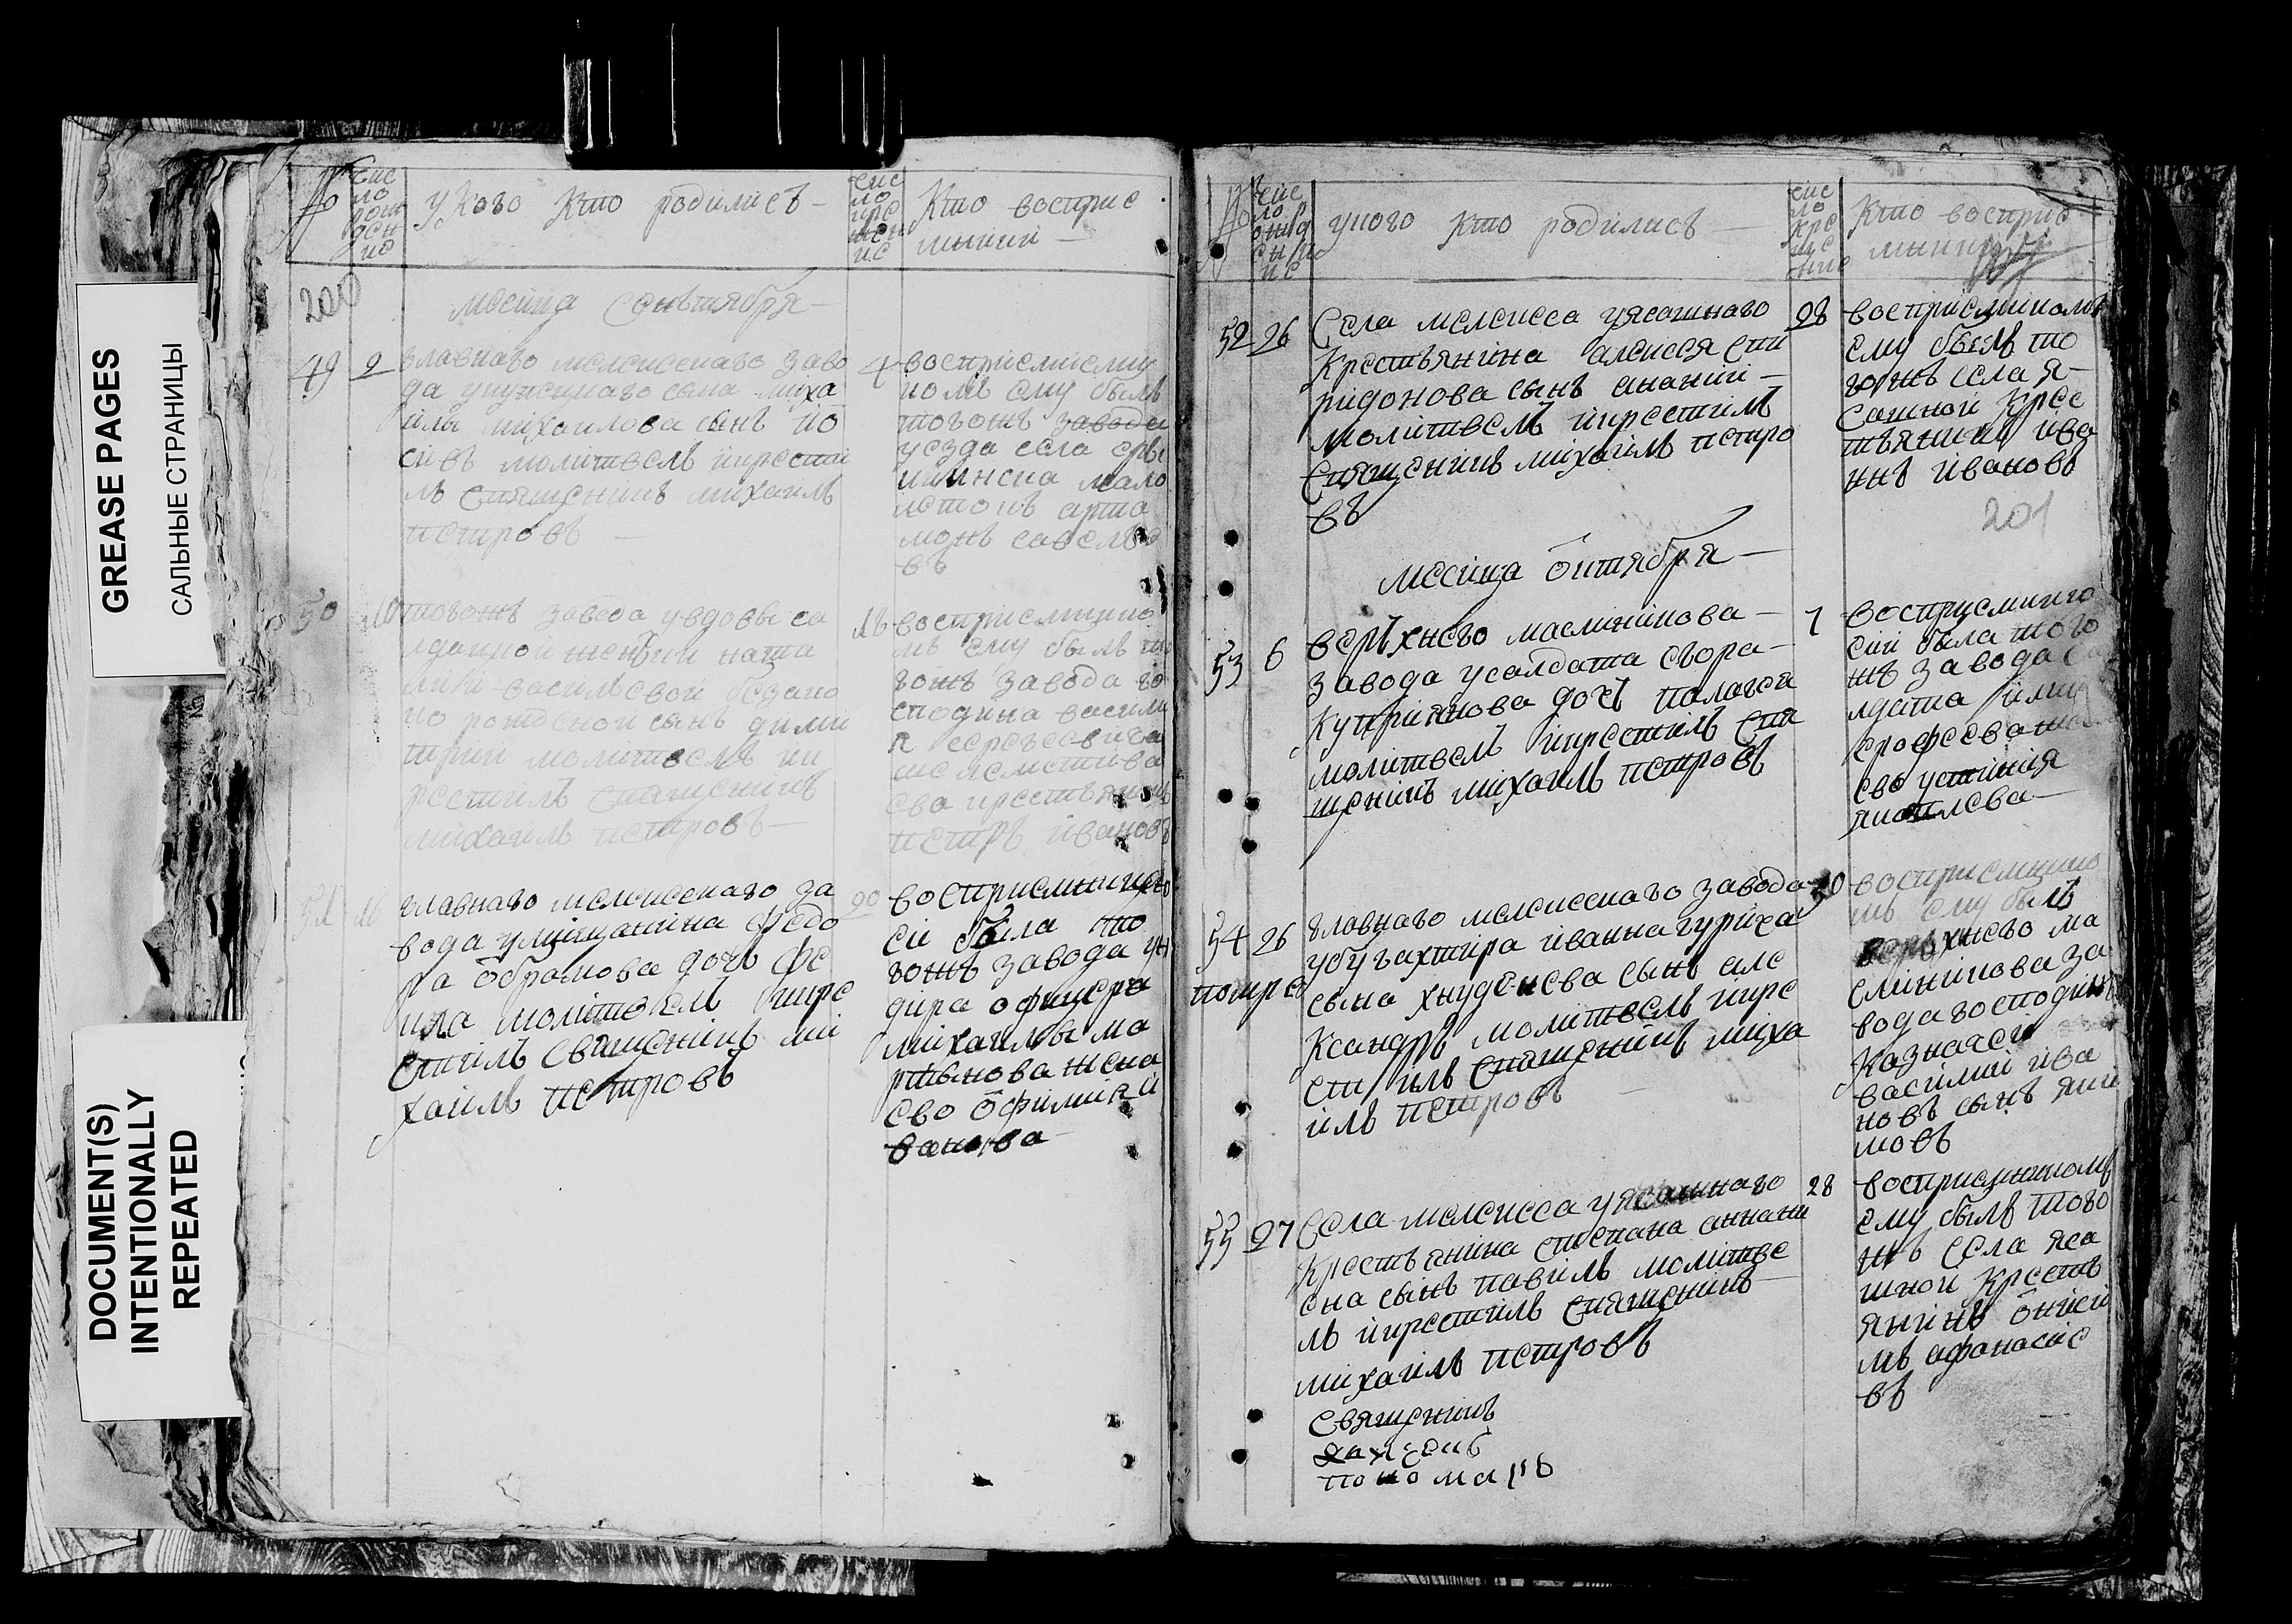 GREASE PAGES
САЛЬНЫЕ СТРАНИЦЫ
DOCUMENT(S)
INTENTIONALLY
REPEATED
№
чис
ло
рож
ден
ия
у кого кто родились
чис
ло
кре
щен
ия
Кто восприе
мники
200
месяца сентября
49
2
главнаго мелекесскаго заво
да у купецкаго сына миха
илы михаилова сынъ ио
сифъ молитвелъ и крести
лъ священникъ михаилъ
петровъ
4
восприемнику
комъ ему былъ
тогожъ завода
уезда села
мало
леток арта
монъ савелье
въ
50
тогожъ завода у вдовы са
лдацкой женки ната
лии васильевой беззако
но рожденой сынъ дими
трий молитвелъ и к
рестилъ священникъ
михаилъ петровъ
18
восприемнико
мъ ему былъ то
гожъ завода го
сподина васили
я сергеевича
крестьянинъ
петръ ивановъ
51
18
главнаго мелекесскаго за
вода у мещанина федо
ра обрамова дочь фе
кла молитвелъ и кре
стилъ священникъ ми
хаилъ петровъ
20
восприемницею
ей была то
гожъ завода ун
дира офицера
михаилы ма
ртынова жена
ево офимия и
ванова
№
чис
ло
у кого кто родились
чис
ло
кре
ще
ние
Кто восприе
мники
52
26
Села мелекеса у ясашнаго
крестьянина алексея спи
ридонова сынъ ананий
молитвелъ и крестилъ
священникъ михаилъ петро
въ
28
восприемникомъ
ему былъ то
гожъ села я
сашной кресе
тьянинъ ива
нъ ивановъ
201
месяца октября
53
6
верхнего маслиникова
завода у солдата егора
куприянова дочь палагея
молитвелъ и крестилъ свя
щеникъ михаилъ петровъ
7
восприемнице
ей была того
жъ завода со
лдата
жена
ево устиния
яковлева
54
26
помре
главнаго мелекесскаго завода
у бугахтира ивана гуриха
сына хнуденева сынъ але
ксандръ молитвелъ и кре
стилъ священникъ миха
илъ петровъ
30
восприемнико
мъ ему былъ
верхнего ма
слиникова за
вода господинъ
казначей
василий ива
новъ сынъ яки
мовъ
55
27
Села мелекеса у ясашнаго
крестьянина степана анани
ена сынъ павилъ молитве
лъ и крестилъ священникъ
михаилъ петровъ
28
восприемникомъ
ему былъ того
жъ села яса
шной кресть
янинъ
мъ афонасие
въ
священникъ
пономарь